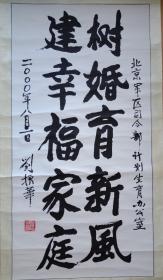 北京军区司令部计划生育办公室
树婚育新風
建幸福家庭
二〇〇〇年八月一日
刘振華